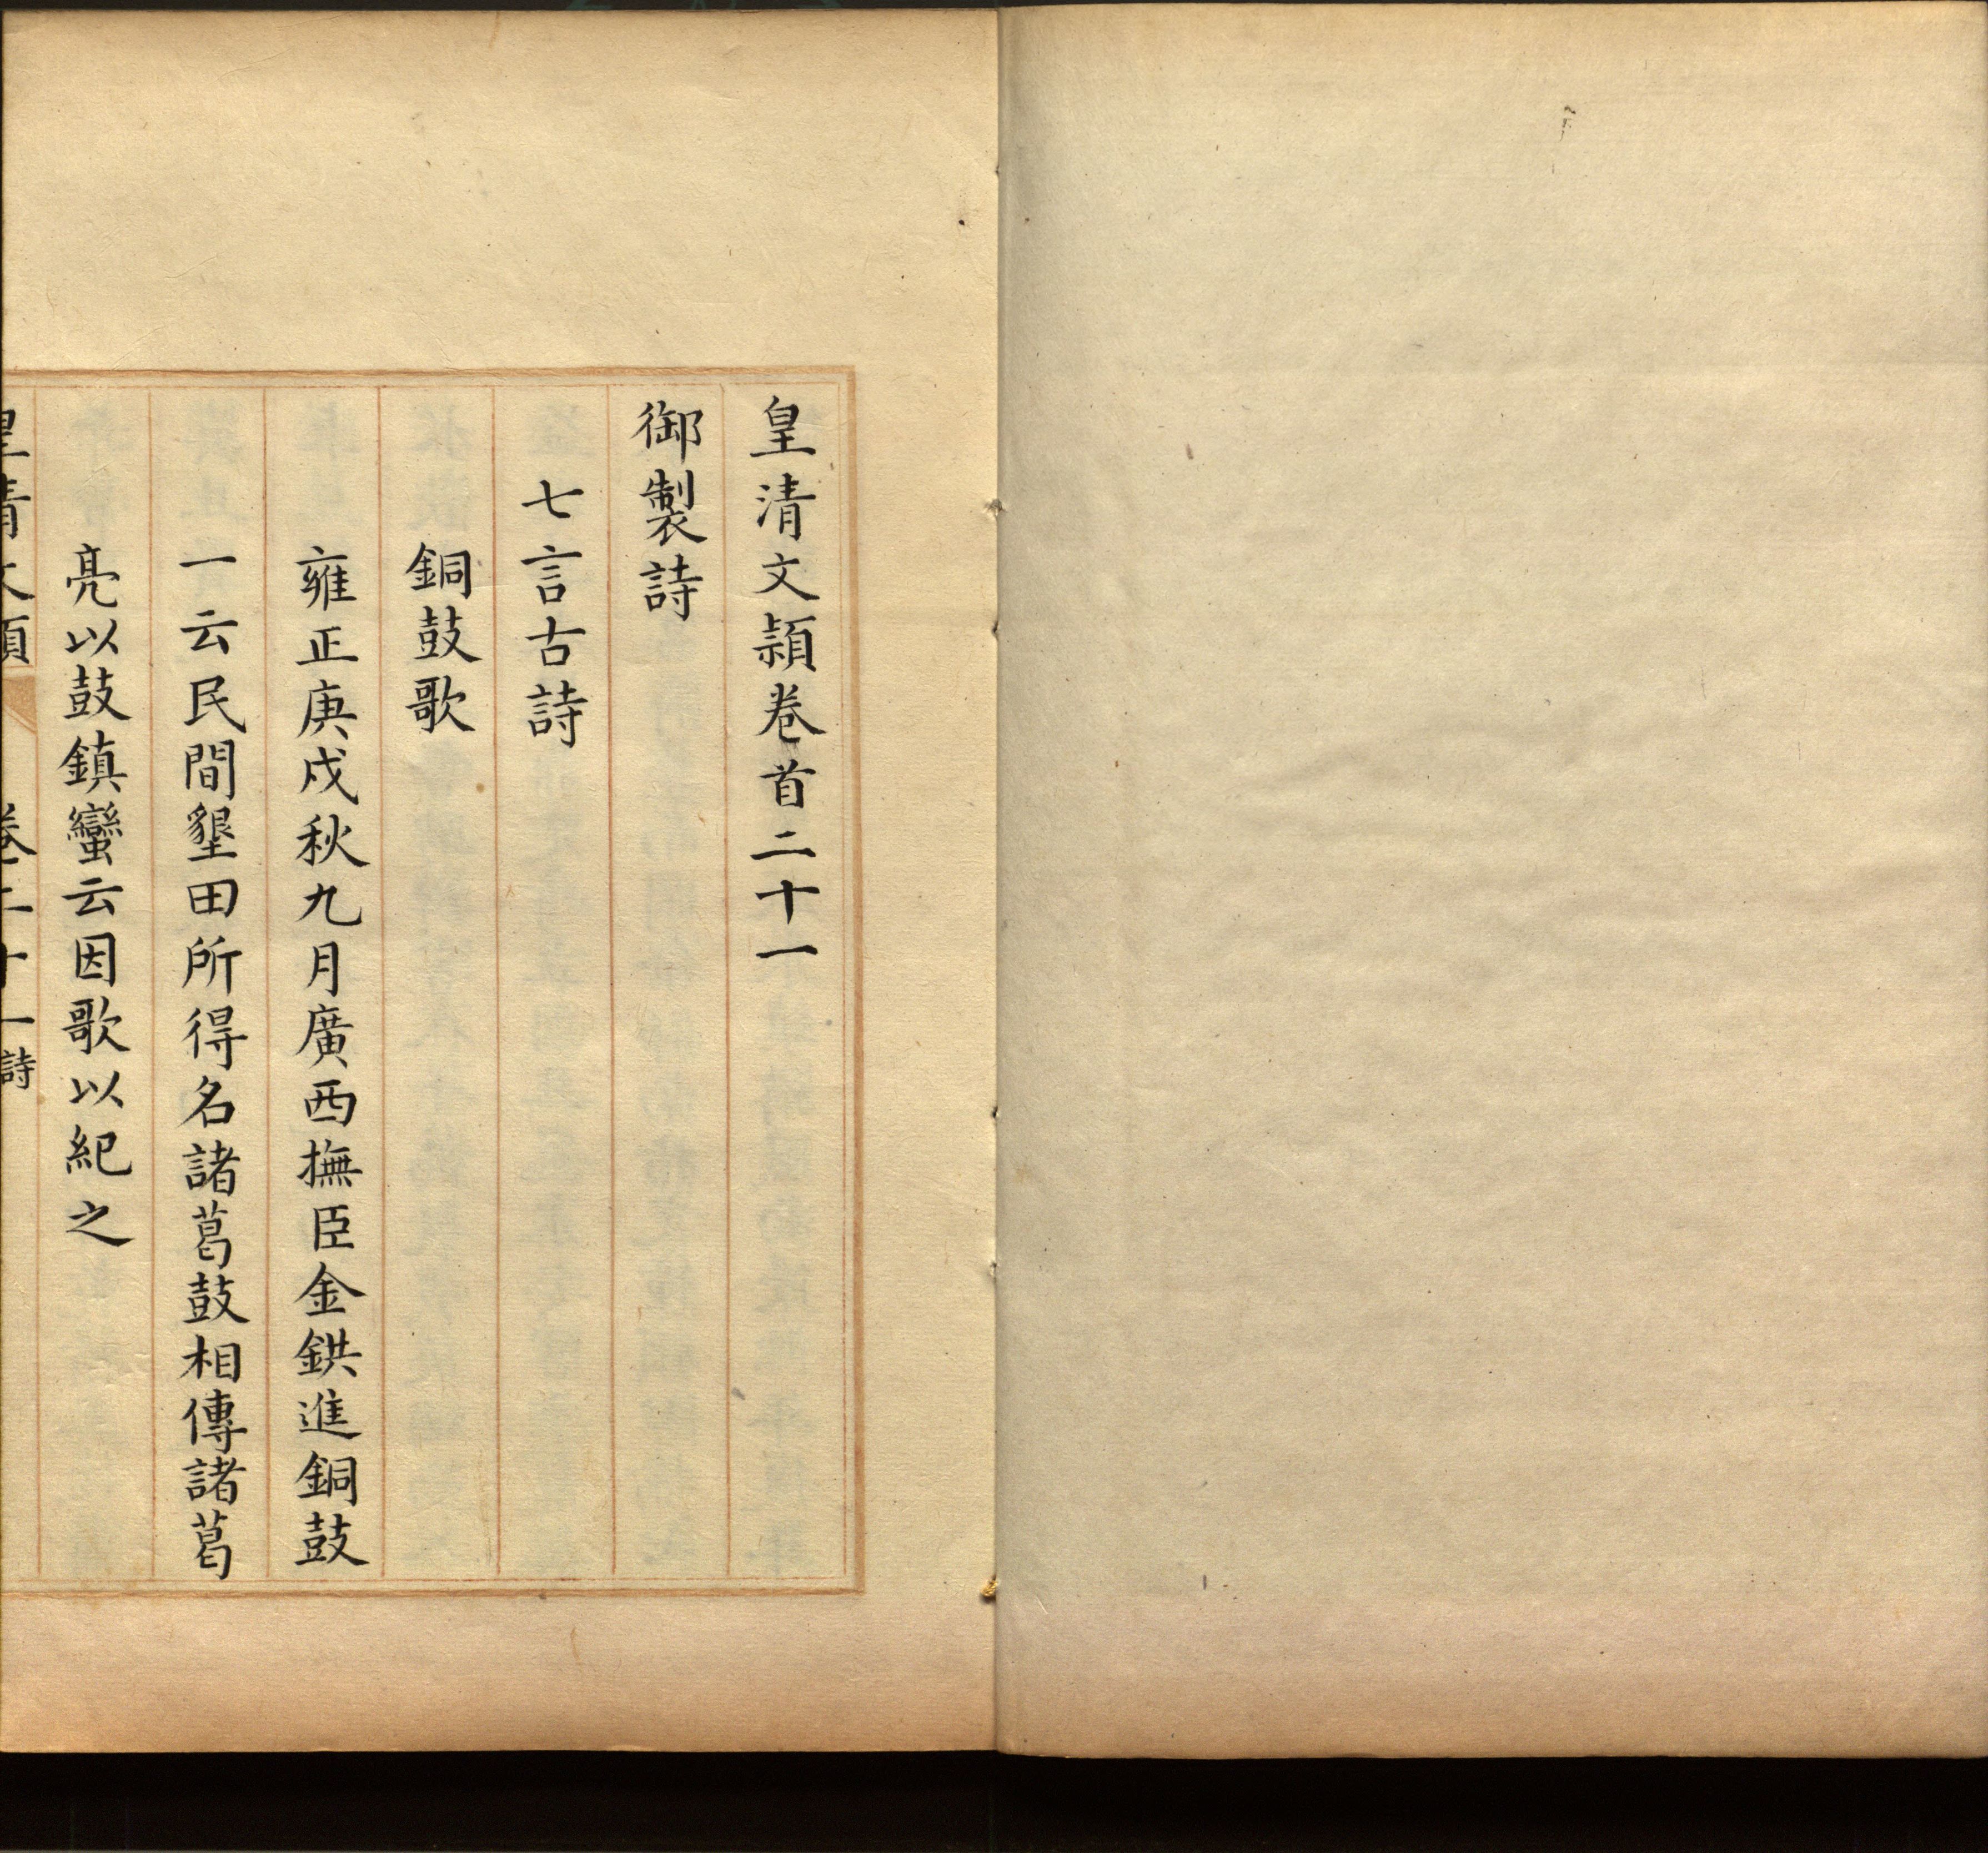 皇清文穎卷首二十一
御製詩
七言古詩
銅鼓歌
雍正庚戌秋九月廣西撫臣金鉷進銅鼓
一云民間墾田所得名諸葛鼓相傳諸葛
亮以鼓鎮蠻云因歌以紀之
皇清文穎 卷二十一詩